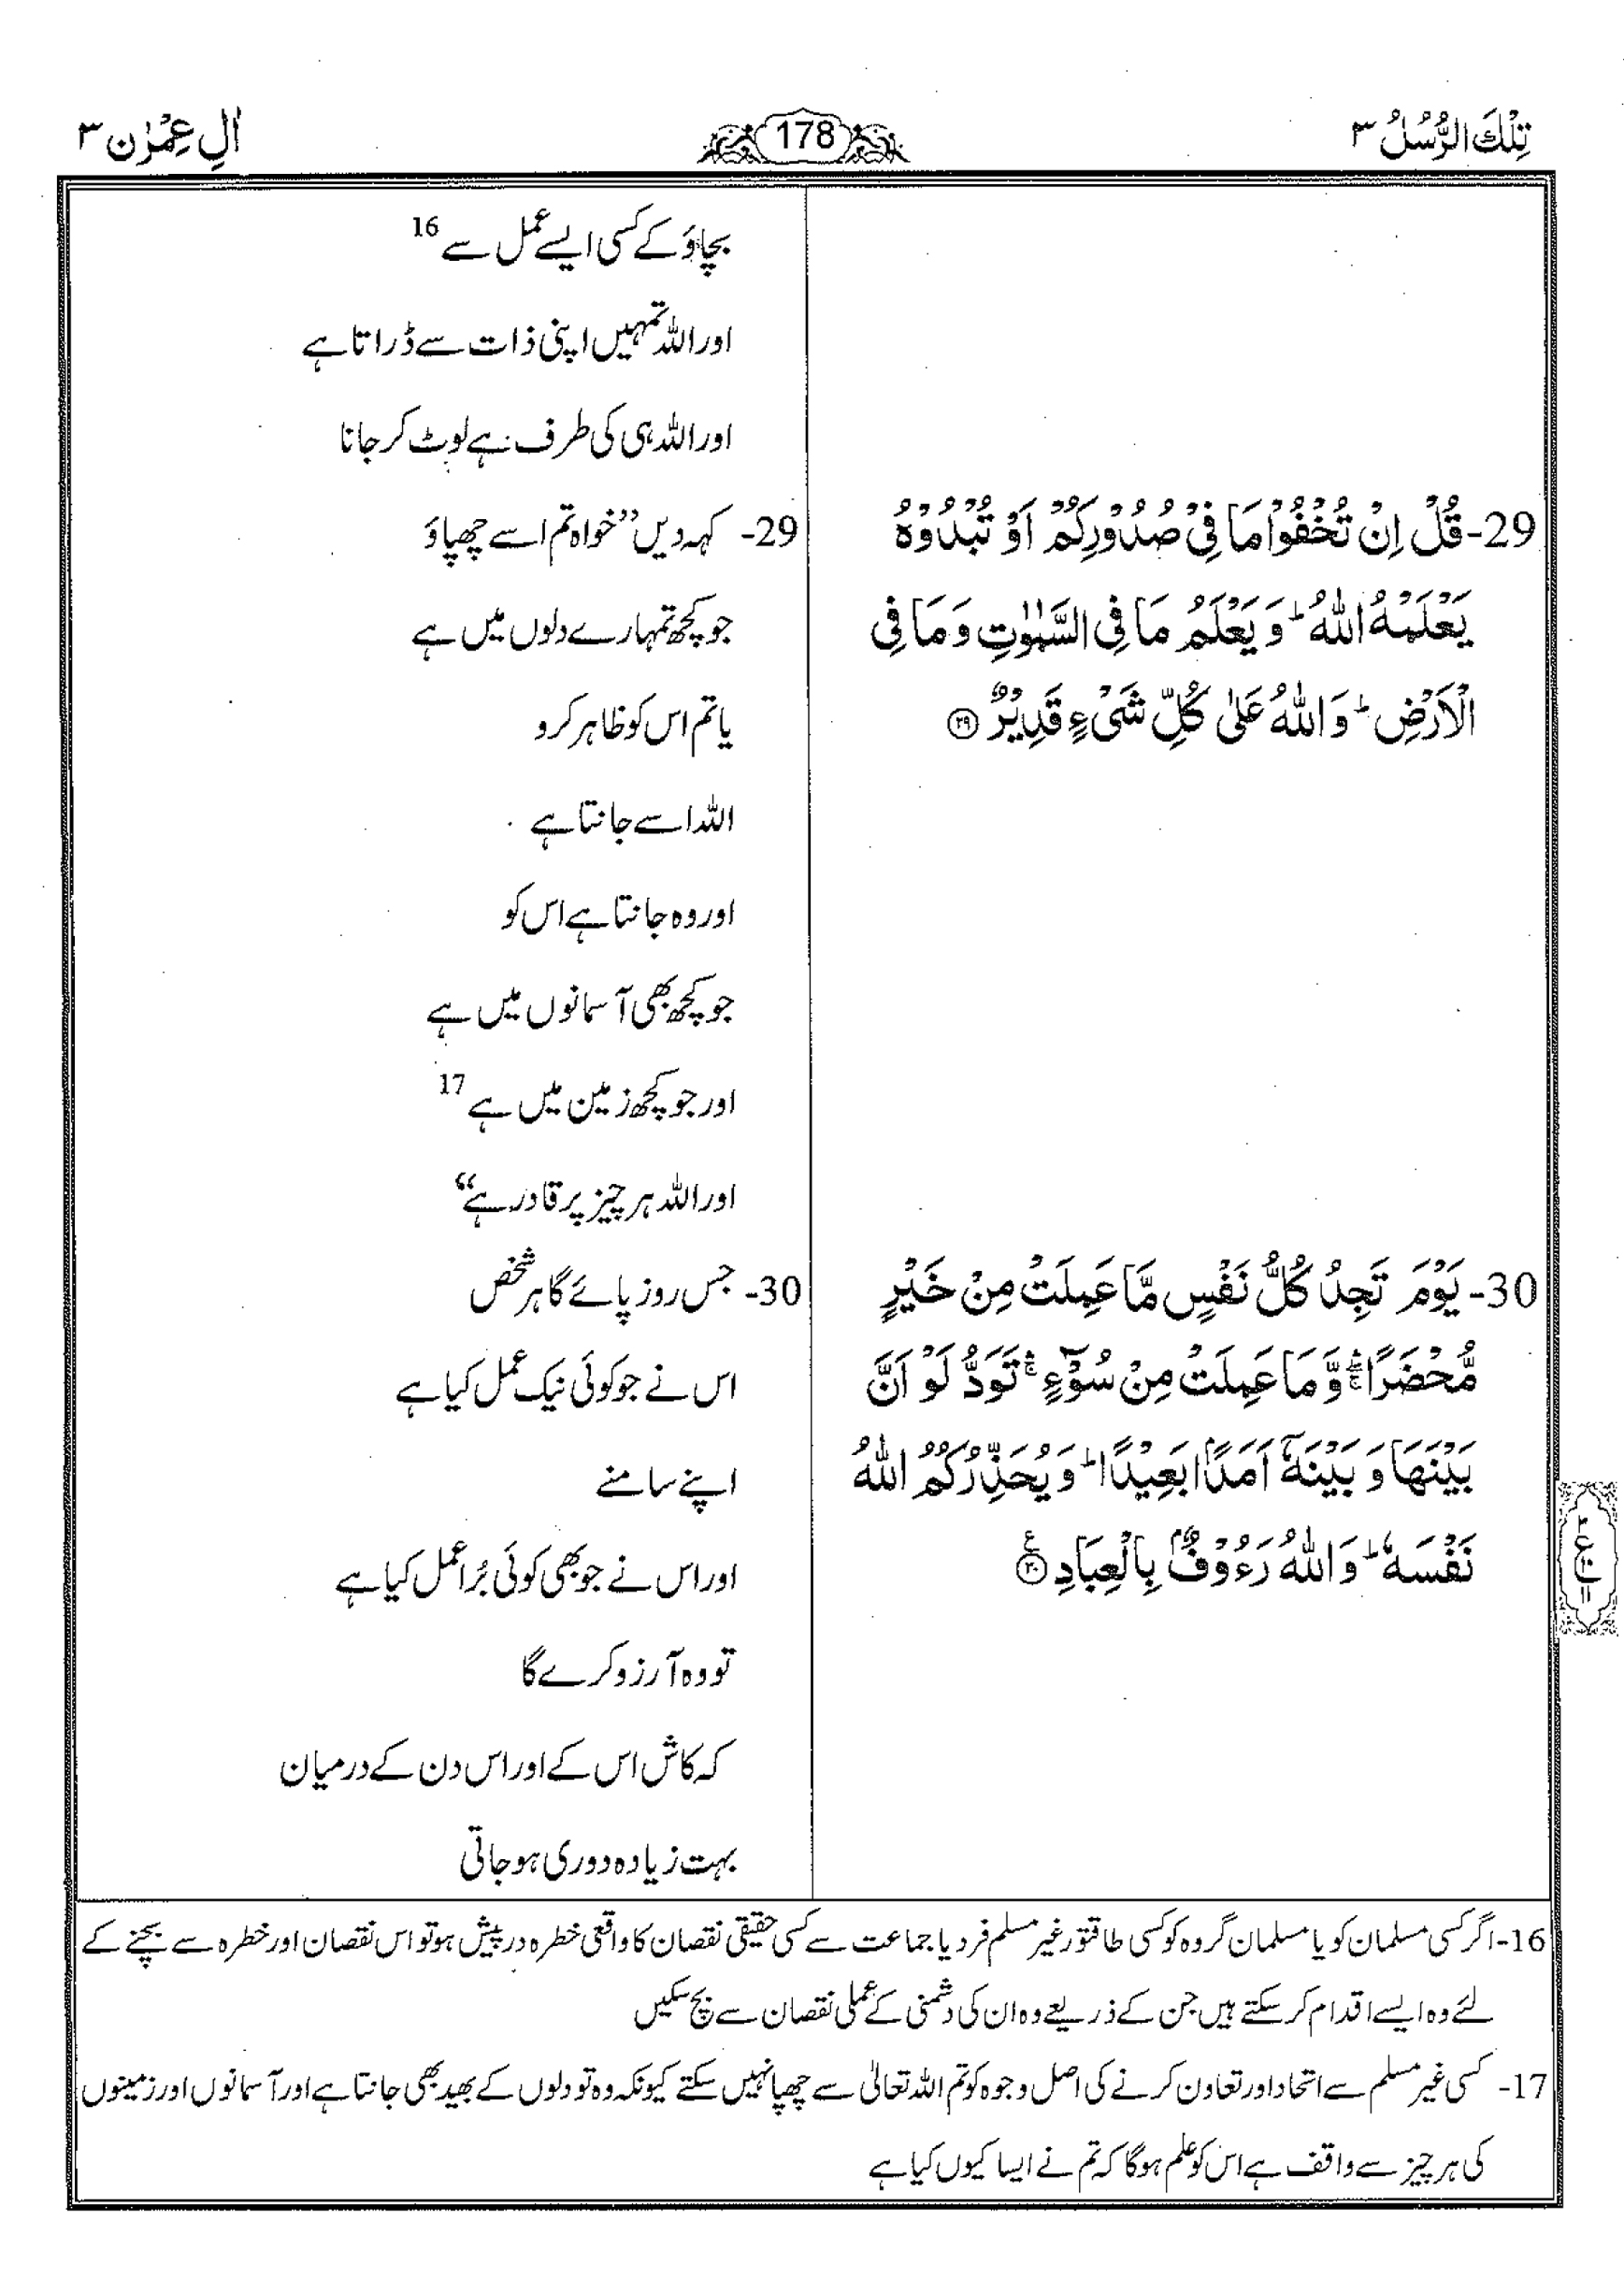 تِلْكَ الرُّسُلُ ٣
178
اٰلِ عِمْرٰن ٣
بچاؤ کے کسی ایسے عمل سے 16
اور اللہ تمہیں اپنی ذات سے ڈراتا ہے
اور اللہ ہی کی طرف ہے لوٹ کر جانا
29- قُلْ اِنْ تُخْفُوْا مَا فِيْ صُدُوْرِكُمْ اَوْ تُبْدُوْهُ
يَعْلَمْهُ اللّٰهُ ؕ وَيَعْلَمُ مَا فِي السَّمٰوٰتِ وَمَا فِي
الْاَرْضِ ؕ وَاللّٰهُ عَلٰى كُلِّ شَيْءٍ قَدِيْرٌ ۝۲۹
29- کہہ دیں ”خواہ تم اسے چھپاؤ
جو کچھ تمہارے دلوں میں ہے
یا تم اس کو ظاہر کرو
اللہ اسے جانتا ہے
اور وہ جانتا ہے اس کو
جو کچھ بھی آسمانوں میں ہے
اور جو کچھ زمین میں ہے 17
اور اللہ ہر چیز پر قادر ہے“
30- يَوْمَ تَجِدُ كُلُّ نَفْسٍ مَّا عَمِلَتْ مِنْ خَيْرٍ
مُّحْضَرًا ۛۚ وَّمَا عَمِلَتْ مِنْ سُوْٓءٍ ۛۚ تَوَدُّ لَوْ اَنَّ
بَيْنَهَا وَبَيْنَهٗٓ اَمَدًۢا بَعِيْدًا ؕ وَيُحَذِّرُكُمُ اللّٰهُ
نَفْسَهٗ ؕ وَاللّٰهُ رَءُوْفٌۢ بِالْعِبَادِ ۝۳۰ ع
30- جس روز پائے گا ہر شخص
اس نے جو کوئی نیک عمل کیا ہے
اپنے سامنے
اور اس نے جو بھی کوئی بُرا عمل کیا ہے
تو وہ آرزو کرے گا
کہ کاش اس کے اور اس دن کے درمیان
بہت زیادہ دوری ہو جاتی
16- اگر کسی مسلمان کو یا مسلمان گروہ کو کسی طاقتور غیر مسلم فرد یا جماعت سے کسی حقیقی نقصان کا واقعی خطرہ درپیش ہو تو اس نقصان اور خطرہ سے بچنے کے
لئے وہ ایسے اقدام کر سکتے ہیں جن کے ذریعے وہ ان کی دشمنی کے عملی نقصان سے بچ سکیں
17- کسی غیر مسلم سے اتحاد اور تعاون کرنے کی اصل وجوہ کو تم اللہ تعالیٰ سے چھپا نہیں سکتے کیونکہ وہ تو دلوں کے بھید بھی جانتا ہے اور آسمانوں اور زمینوں
کی ہر چیز سے واقف ہے اس کو علم ہوگا کہ تم نے ایسا کیوں کیا ہے